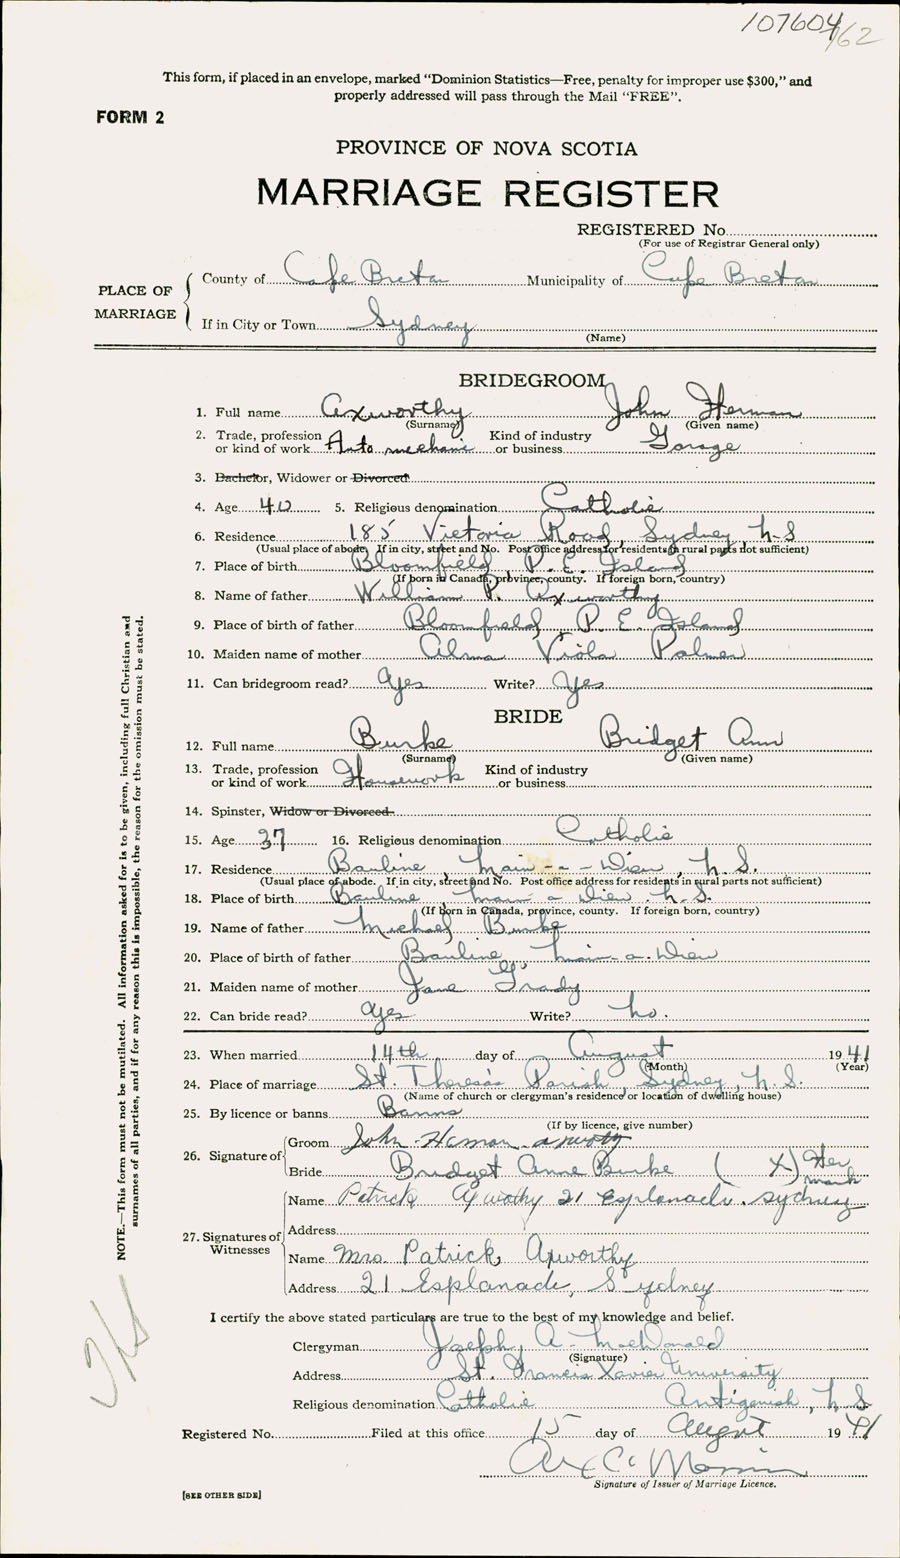 107604/62
This form, if placed in an envelope, marked “Dominion Statistics—Free, penalty for improper use $300,” and
properly addressed will pass through the Mail “FREE”.
FORM 2
PROVINCE OF NOVA SCOTIA
MARRIAGE REGISTER
REGISTERED No.
(For use of Registrar General only)
PLACE OF MARRIAGE
County of Cape Breton Municipality of Cape Breton
If in City or Town Sydney
(Name)
BRIDEGROOM
1. Full name Axworthy John Herman
(Surname) (Given name)
2. Trade, profession or kind of work Auto mechanic Kind of industry or business Garage
3. Bachelor, Widower or Divorced
4. Age 40 5. Religious denomination Catholic
6. Residence 185 Victoria Road, Sydney N-S
(Usual place of abode. If in city, street and No. Post office address for residents in rural parts not sufficient)
7. Place of birth Bloomfield P. E. Island
(If born in Canada, province, county. If foreign born, country)
8. Name of father William P. Axworthy
9. Place of birth of father Bloomfield, P E. Island
10. Maiden name of mother Alma Viola Palmer
11. Can bridegroom read? Yes Write? Yes
BRIDE
12. Full name Burke Bridget Ann
(Surname) (Given name)
13. Trade, profession or kind of work Housework Kind of industry or business
14. Spinster, Widow or Divorced
15. Age 37 16. Religious denomination Catholic
17. Residence Bauline, Main-a-Dieu, N. S.
(Usual place of abode. If in city, street and No. Post office address for residents in rural parts not sufficient)
18. Place of birth Bauline Main a Dieu N. S.
(If born in Canada, province, county. If foreign born, country)
19. Name of father Michael Burke
20. Place of birth of father Bauline, Main-a-Dieu
21. Maiden name of mother Jane Grady
22. Can bride read? Yes Write? No.
23. When married 14th day of August 1941
(Month) (Year)
24. Place of marriage St. Theresa's Parish, Sydney, N. S.
(Name of church or clergyman's residence or location of dwelling house)
25. By licence or banns Banns
(If by licence, give number)
26. Signature of
Groom John Herman
Bride Bridget Anne Burke ( X ) Her mark
27. Signatures of Witnesses
Name Patrick Axworthy 21 Esplanade. Sydney
Address
Name Mrs. Patrick Axworthy
Address 21 Esplanade, Sydney
I certify the above stated particulars are true to the best of my knowledge and belief.
Clergyman Joseph A. MacDonald
(Signature)
Address St. Francis Xavier University
Religious denomination Catholic Antigonish, N. S
Registered No. Filed at this office 15 day of August 1941
Signature of Issuer of Marriage Licence.
[SEE OTHER SIDE]
NOTE.—This form must not be mutilated. All information asked for is to be given, including full Christian and
surnames of all parties, and if for any reason this is impossible, the reason for the omission must be stated.